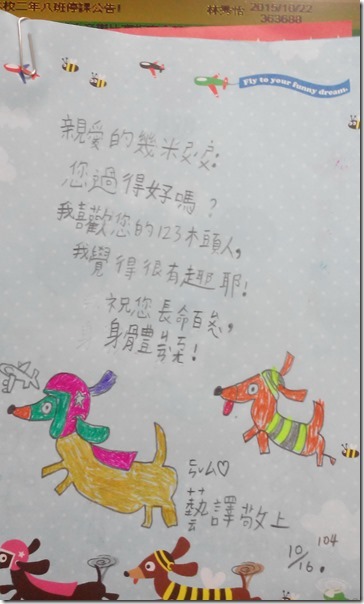 校二年八班停課公告!
2015/10/22
363688
Fly to your funny dream.
親愛的幾米
您過得好嗎?
我喜歡您的123木頭人,
我覺得很有趣耶!
祝您長命百
身體
藝譯敬上
104
10/16.